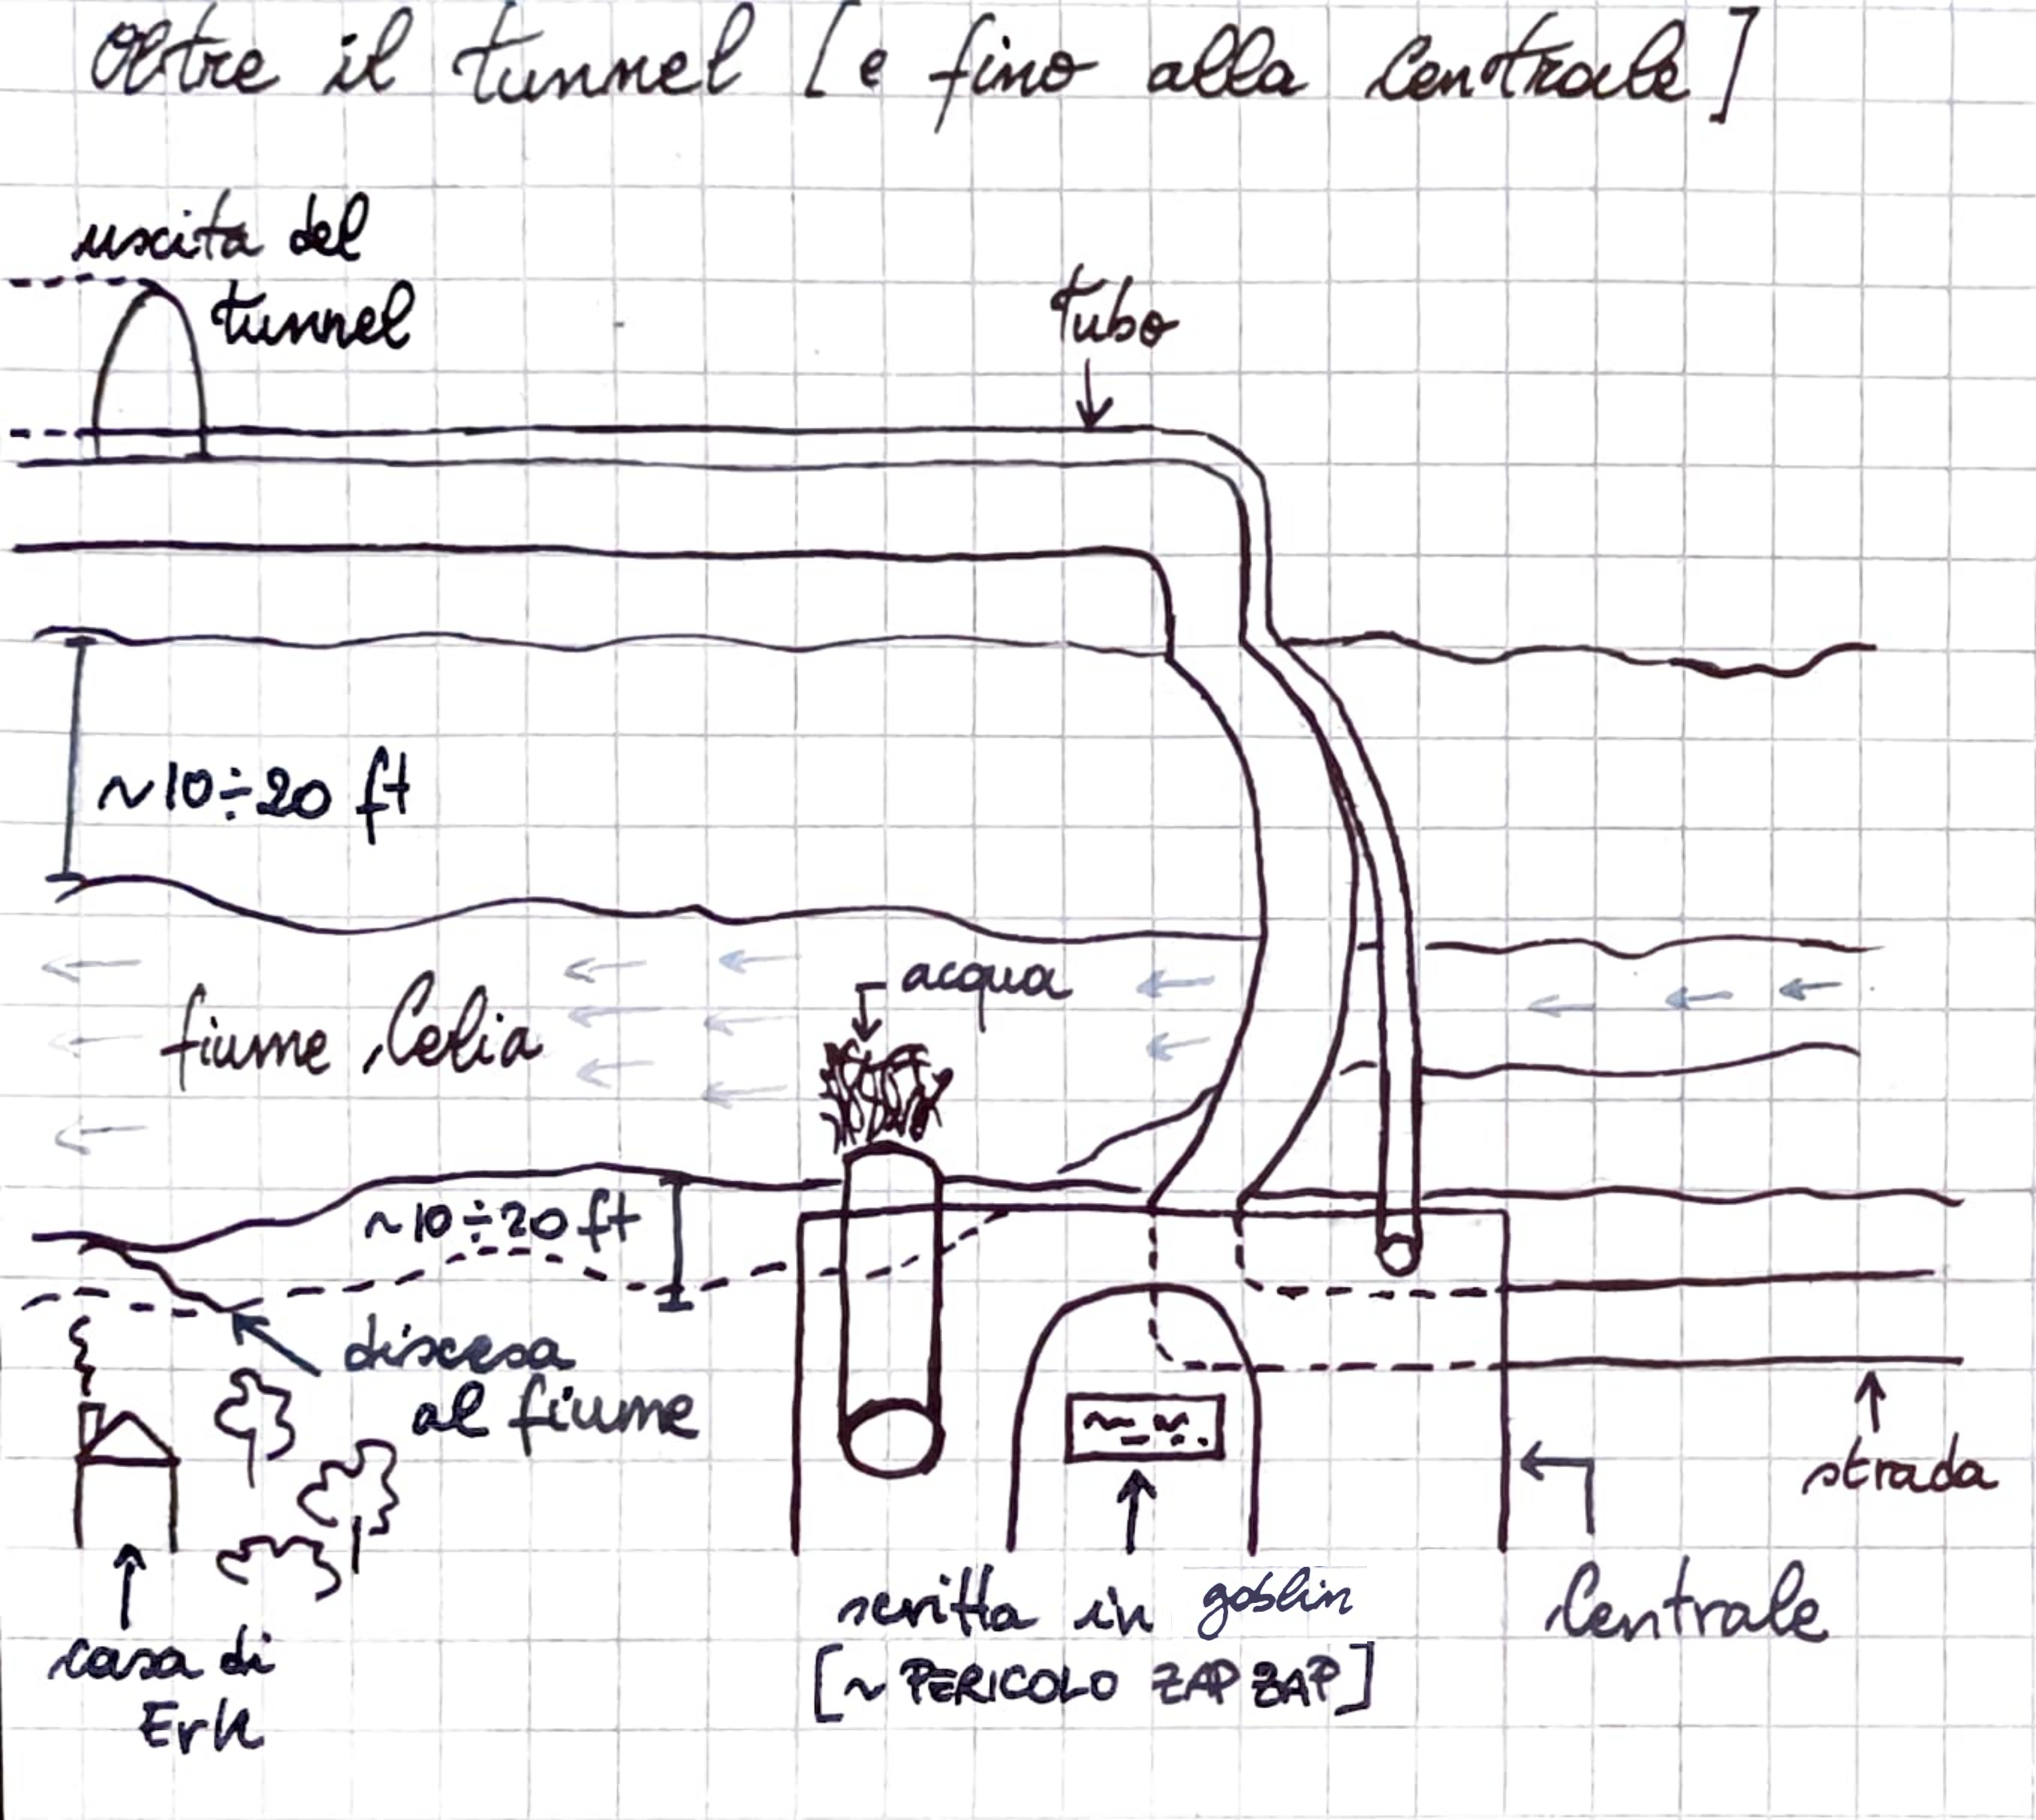 Oltre il tunnel [e fino alla Centrale]
uscita del
tunnel
tubo
~10÷20 ft
acqua
fiume Celia
~10÷20 ft
discesa
al fiume
strada
casa di
Erk
scritta in goblin
[~ PERICOLO ZAP ZAP]
Centrale